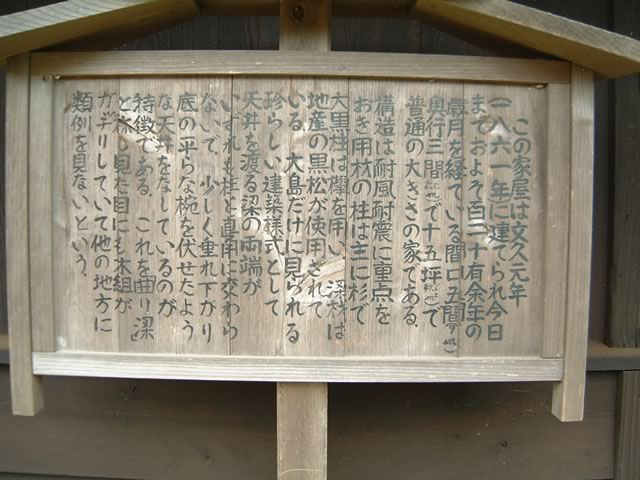 この家屋は文久元年
一八六一年に建てられ今日
までおよそ百二十有余年の
歳月を経ている間口五間
奥行三間で十五坪で
普通の大きさの家である。
構造は耐風耐震に重点を
おき用材の柱は主に杉で
大黒柱は欅を用い、梁材は
地産の黒松が使用されて
いる。大島だけに見られる
珍らしい建築様式として
天井を渡る梁の両端が
いずれも柱と直角に交わら
ないで、少しく垂れ下がり
底の平らな椀を伏せたよう
な天井をなしているのが
特徴である。これを曲り梁
と称し見た目にも木組が
ガッチリしていて他の地方に
類例を見ないという。